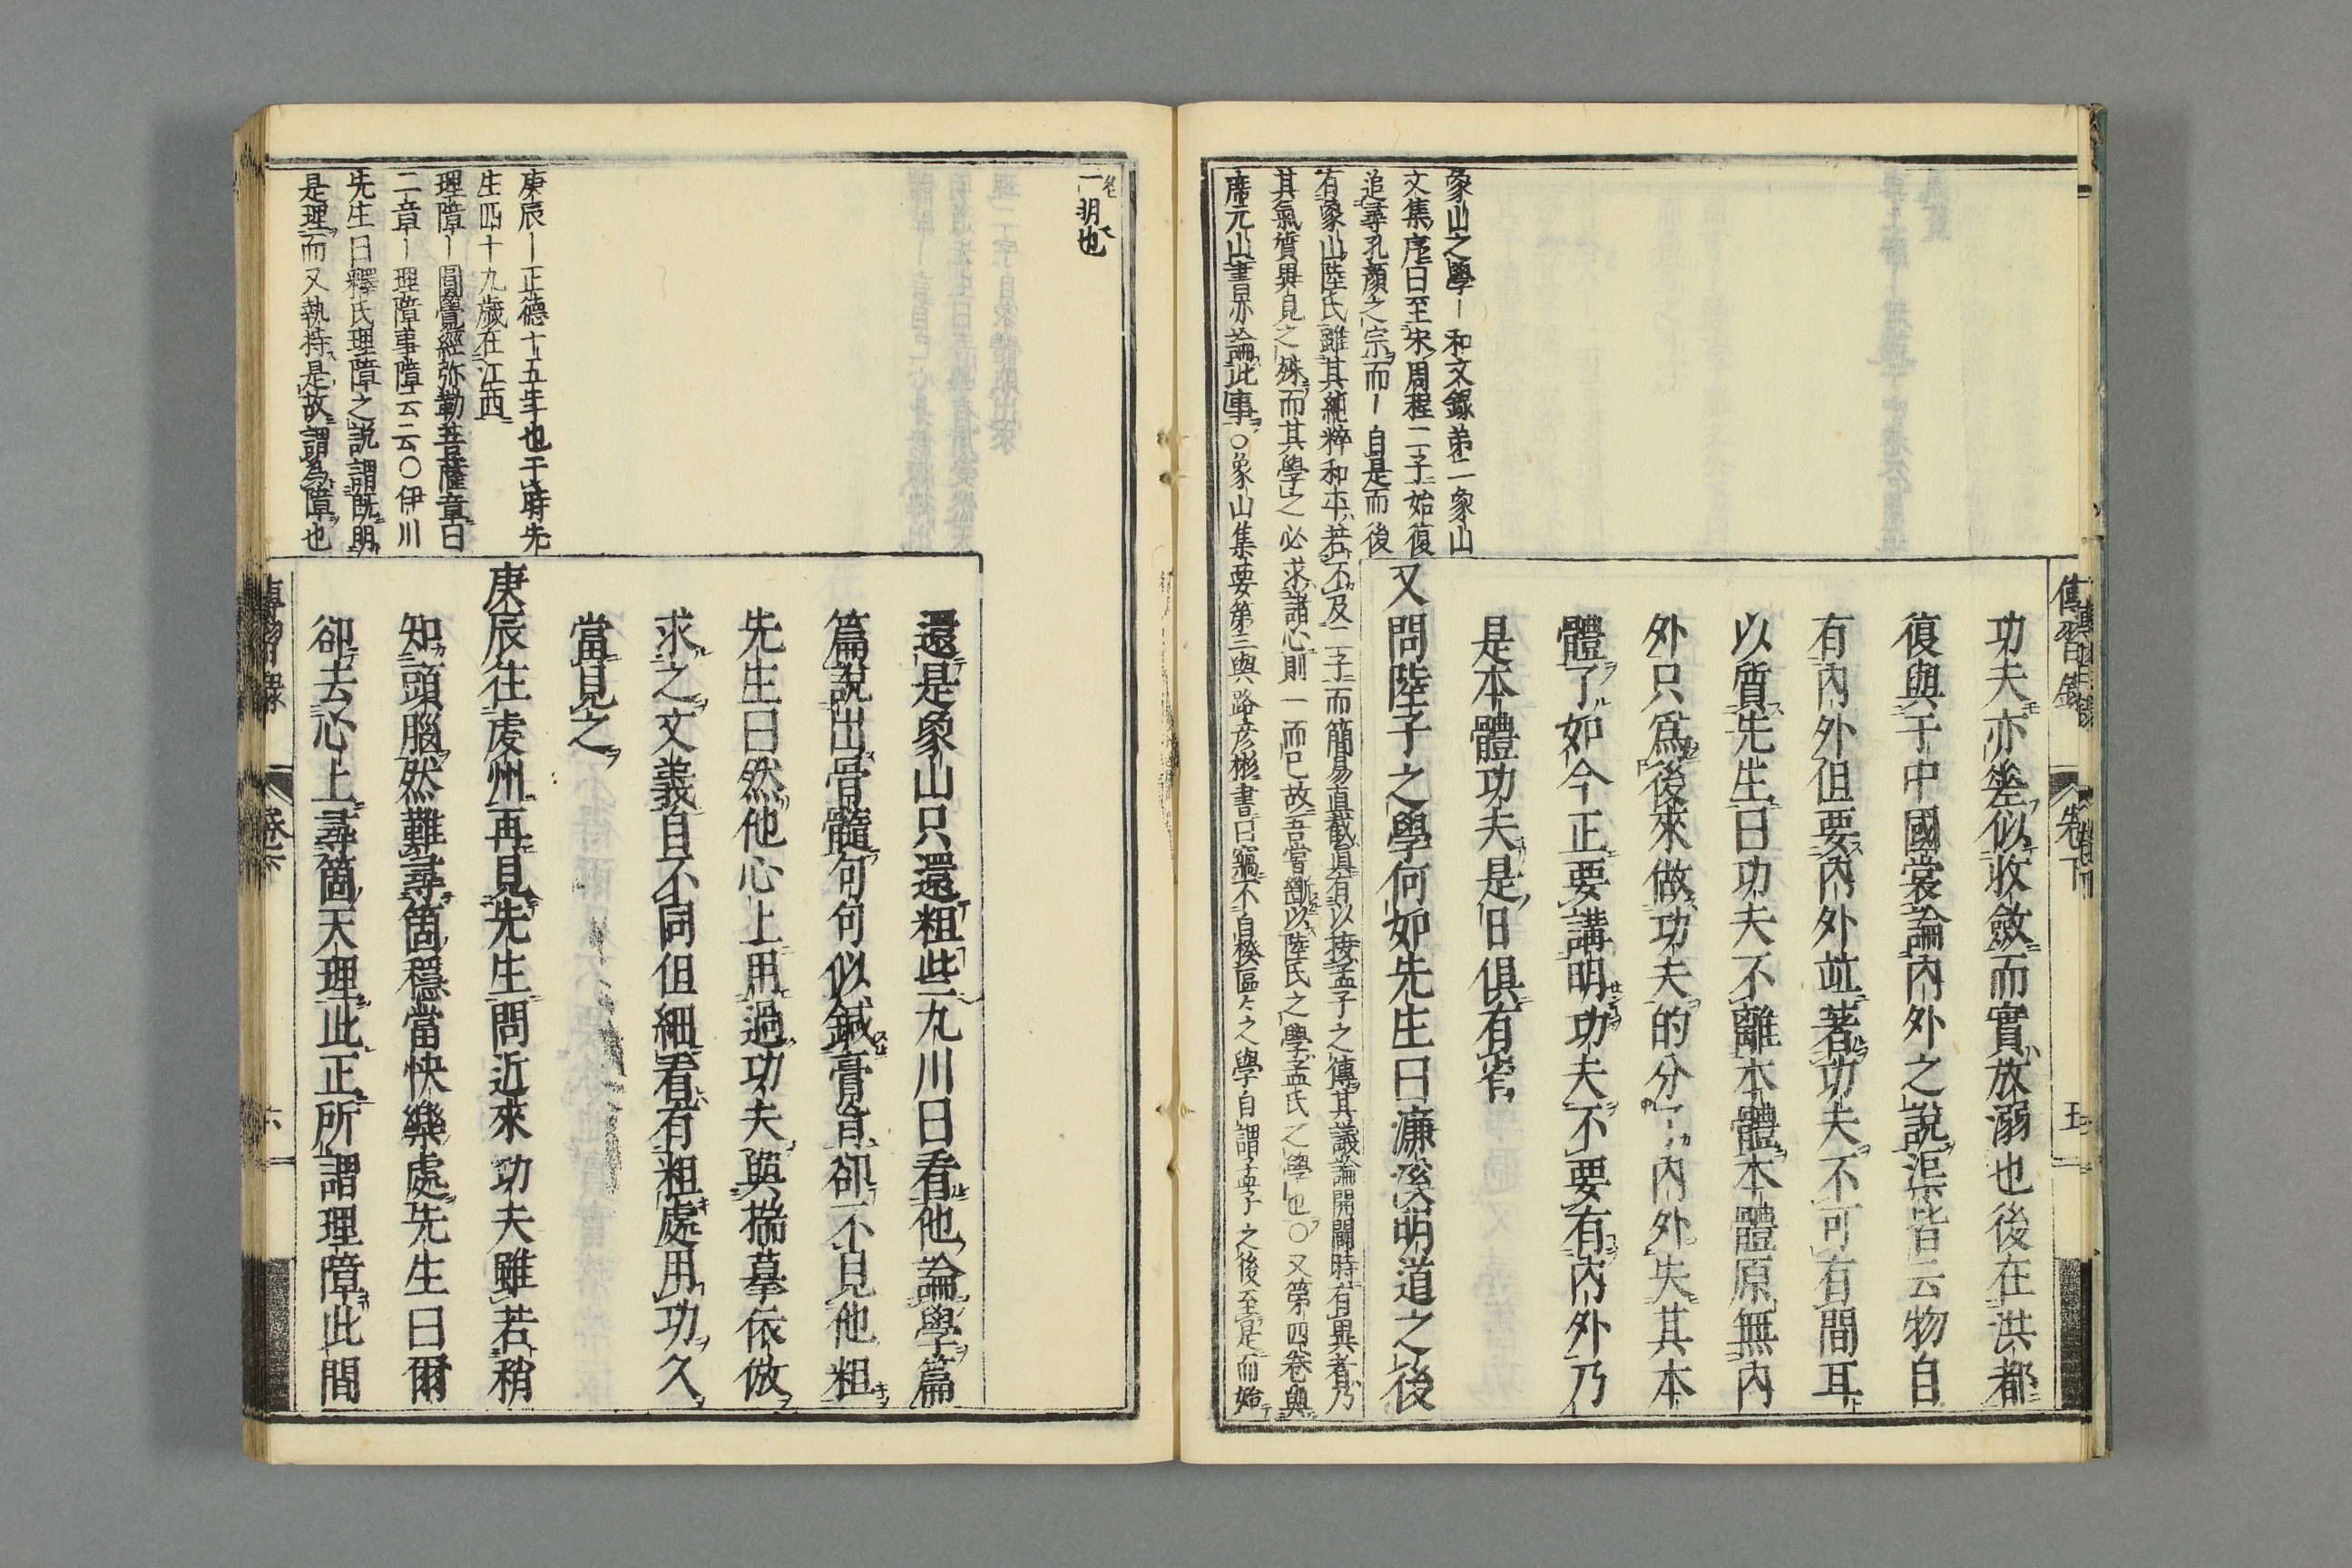 傳習錄
卷下
五
功夫亦差似收斂而實放溺也後在洪都
復與于中國裳論內外之說渠皆云物自
有內外但要內外竝著功夫不可有間耳
以質先生曰功夫不離本體本體原無內
外只爲後來做功夫的分了內外失其本
體了如今正要講明功夫不要有內外乃
是本體功夫是日俱有省
又問陸子之學何如先生曰濂溪明道之後
象山之學ー和文錄第二象山
文集序曰至宋周程二子始復
追尋孔顏之宗而ー自是而後
有象山陸氏雖其純粹和平若不及二子而簡易直截眞有以接孟子之傳其議論開闔時有異者乃
其氣質異見之殊而其學之必求諸心則一而已故吾嘗斷以陸氏之學孟氏之學也〇又第四卷與
席元山書亦論此事〇象山集要第三與路彥彬書曰竊不自揆區々之學自謂孟子之後至是而始
一明也
還是象山只還粗些九川曰看他論學篇
篇說出骨髓句句似鍼膏肓卻不見他粗
先生曰然他心上用過功夫與揣摹依倣
求之文義自不同但細看有粗處用功久
當見之
庚辰ー正德十五年也于時先
生四十九歲在江西
理障ー圓覺經弥勒菩薩章曰
二章ー理障事障云云〇伊川
先生曰釋氏理障之說謂既明
是理而又執持是故謂為障也
庚辰往虔州再見先生問近來功夫雖若稍
知頭腦然難尋箇穩當快樂處先生曰爾
卻去心上尋箇天理此正所謂理障此間
傳習錄
卷下
六